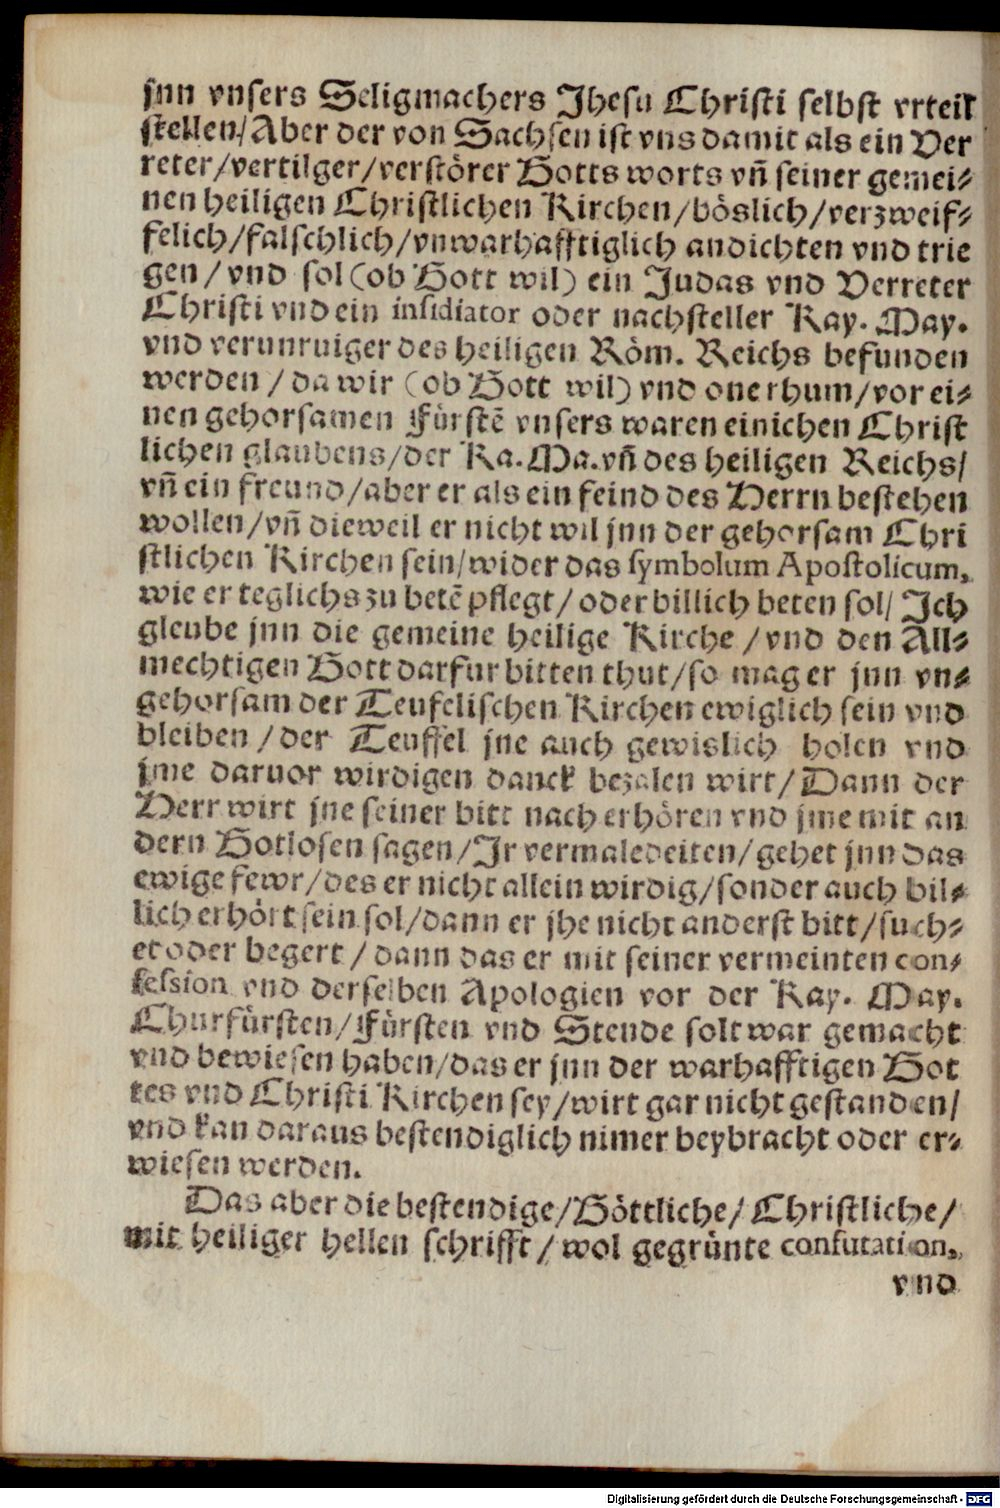 jnn vnsers Seligmachers Jhesu Christi selbst vrteil
stellen/Aber der von Sachsen ist vns damit als ein Ver
reter/vertilger/verstörer Gotts worts vñ seiner gemei⸗
nen heiligen Christlichen Kirchen/böslich/verzweif⸗
felich/falschlich/vnwarhafftiglich andichten vnd trie
gen/vnd sol (ob Gott wil) ein Judas vnd Verreter
Christi vnd ein insidiator oder nachsteller Kay. May.
vnd verunruiger des heiligen Röm. Reichs befunden
werden/da wir (ob Gott wil) vnd one rhum/vor ei⸗
nen gehorsamen Fürstē vnsers waren einichen Christ
lichen glaubens/der Ka. Ma. vñ des heiligen Reichs/
vñ ein freund/aber er als ein feind des Herrn bestehen
wollen/vñ dieweil er nicht wil jnn der gehorsam Chri
stlichen Kirchen sein/wider das symbolum Apostolicum,
wie er teglichs zu betē pflegt/oder billich beten sol/Ich
gleube jnn die gemeine heilige Kirche/vnd den All⸗
mechtigen Gott darfur bitten thut/so mag er jnn vn⸗
gehorsam der Teufelischen Kirchen ewiglich sein vnd
bleiben/der Teuffel jne auch gewislich holen vnd
jme daruor wirdigen danck bezalen wirt/Dann der
Herr wirt jne seiner bitt nach erhören vnd jme mit an
dern Gotlosen sagen/Ir vermaledeiten/gehet jnn das
ewige fewr/des er nicht allein wirdig/sonder auch bil⸗
lich erhört sein sol/dann er jhe nicht anderst bitt/such⸗
et oder begert/dann das er mit seiner vermeinten con⸗
fession vnd derselben Apologien vor der Kay. May.
Churfürsten/Fürsten vnd Stende solt war gemacht
vnd bewiesen haben/das er jnn der warhafftigen Got
tes vnd Christi Kirchen sey/wirt gar nicht gestanden/
vnd kan daraus bestendiglich nimer beybracht oder er⸗
wiesen werden.
Das aber die bestendige/Göttliche/Christliche/
mit heiliger hellen schrifft/wol gegrünte confutation,
vnd
Digitalisierung gefördert durch die Deutsche Forschungsgemeinschaft - DFG